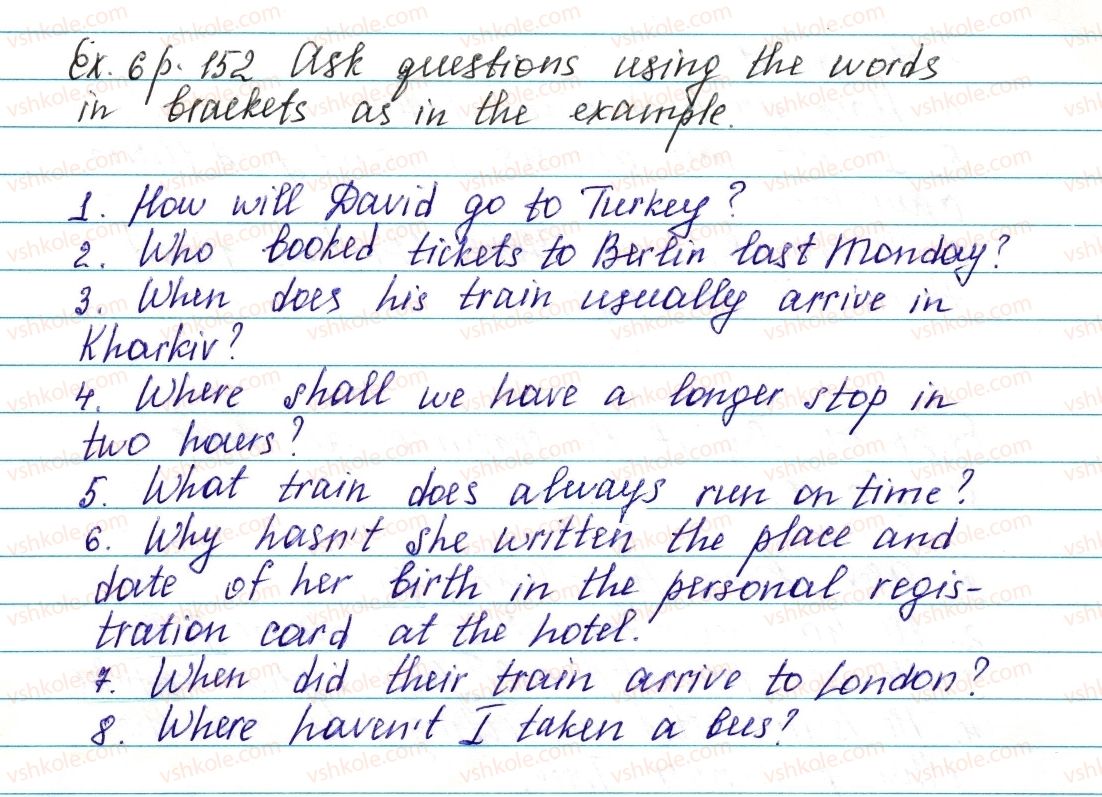 Ex. 6 p. 152 Ask questions using the words
in brackets as in the example.
1. How will David go to Turkey?
2. Who booked tickets to Berlin last Monday?
3. When does his train usually arrive in
Kharkiv?
4. Where shall we have a longer stop in
two hours?
5. What train does always run on time?
6. Why hasn't she written the place and
date of her birth in the personal regis-
tration card at the hotel.
7. When did their train arrive to London?
8. Where haven't I taken a bus?
vshkole.com